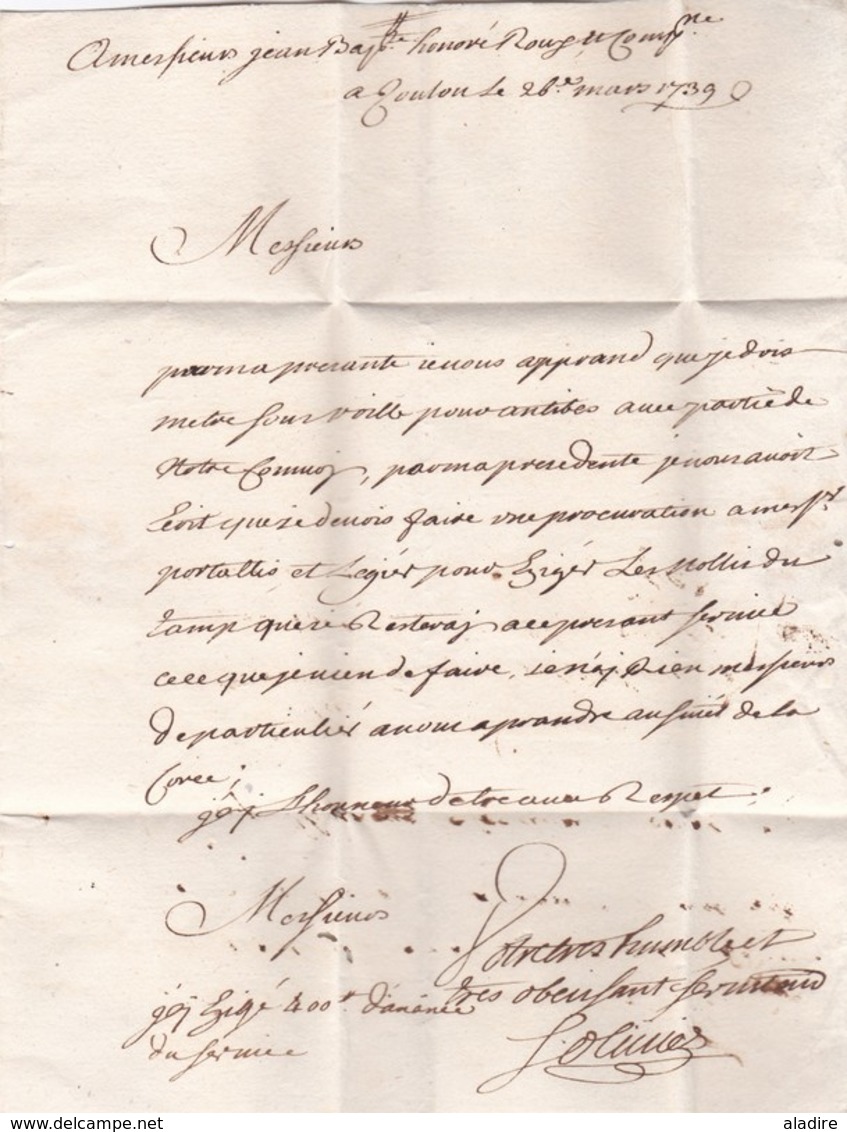 A messieurs jean Bapte honoré Roux et Compne
a Toulon Le 26e mars 1739
Messieurs
par ma presante je vous apprand que je dois
metre sous voille pour antibes avec partie de
Notre Convoj, par ma presedente je vous avois
Ecrit que je devois faire une procuration a messrs
portallis et Legier pour Exigér Les Nollis du
tamp que je Resteraj a ce presant service
cece que je vien de faire, je n'aj Rien messieurs
de particulier a vous aprandre au sujet de la
Corce;
j'ej L'honneur d'etre avec Respet;
Messieurs
Votre tres humble et
tres obeissant serviteur
j'ej Exigé 400# d'avance
du service
S. Olivier
delcampe.net
aladire